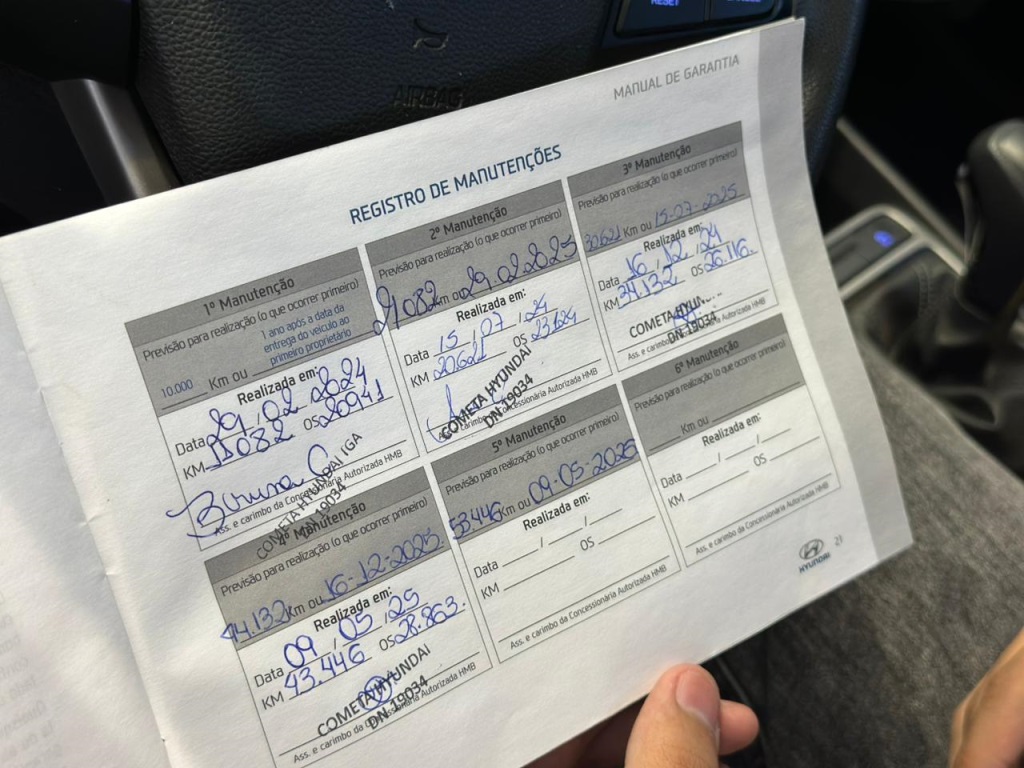 RESET
AIRBAG
MANUAL DE GARANTIA
REGISTRO DE MANUTENÇÕES
1º Manutenção
Previsão para realização (o que ocorrer primeiro)
1 ano após a data da
entrega do veículo ao
10.000 Km ou primeiro proprietário
Realizada em:
Data 29, 02 2024
KM 11082 OS 20941
Bruna
Ass. e carimbo da Concessionária Autorizada HMB
COMETA HYUNDAI IGA
DN 19034
2º Manutenção
Previsão para realização (o que ocorrer primeiro)
21082 Km ou 29.02.2025
Realizada em:
Data 15, 07, 24
KM 20621 OS 23124
Ass. e carimbo da Concessionária Autorizada HMB
COMETA HYUNDAI
DN 19034
3º Manutenção
Previsão para realização (o que ocorrer primeiro)
30621 Km ou 15-07-2025
Realizada em:
Data 16, 12, 24
KM 34.132 OS 26.116.
Ass. e carimbo da Concessionária Autorizada HMB
COMETA HYUNDAI
DN 19034
4º Manutenção
Previsão para realização (o que ocorrer primeiro)
44.132 Km ou 16-12-2025
Realizada em:
Data 09, 05, 25
KM 43.446 OS 28.863.
Ass. e carimbo da Concessionária Autorizada HMB
COMETA HYUNDAI
DN 19034
5º Manutenção
Previsão para realização (o que ocorrer primeiro)
53.446 Km ou 09-05-2026
Realizada em:
Data / /
KM OS
Ass. e carimbo da Concessionária Autorizada HMB
6º Manutenção
Previsão para realização (o que ocorrer primeiro)
Km ou
Realizada em:
Data / /
KM OS
Ass. e carimbo da Concessionária Autorizada HMB
HYUNDAI
21